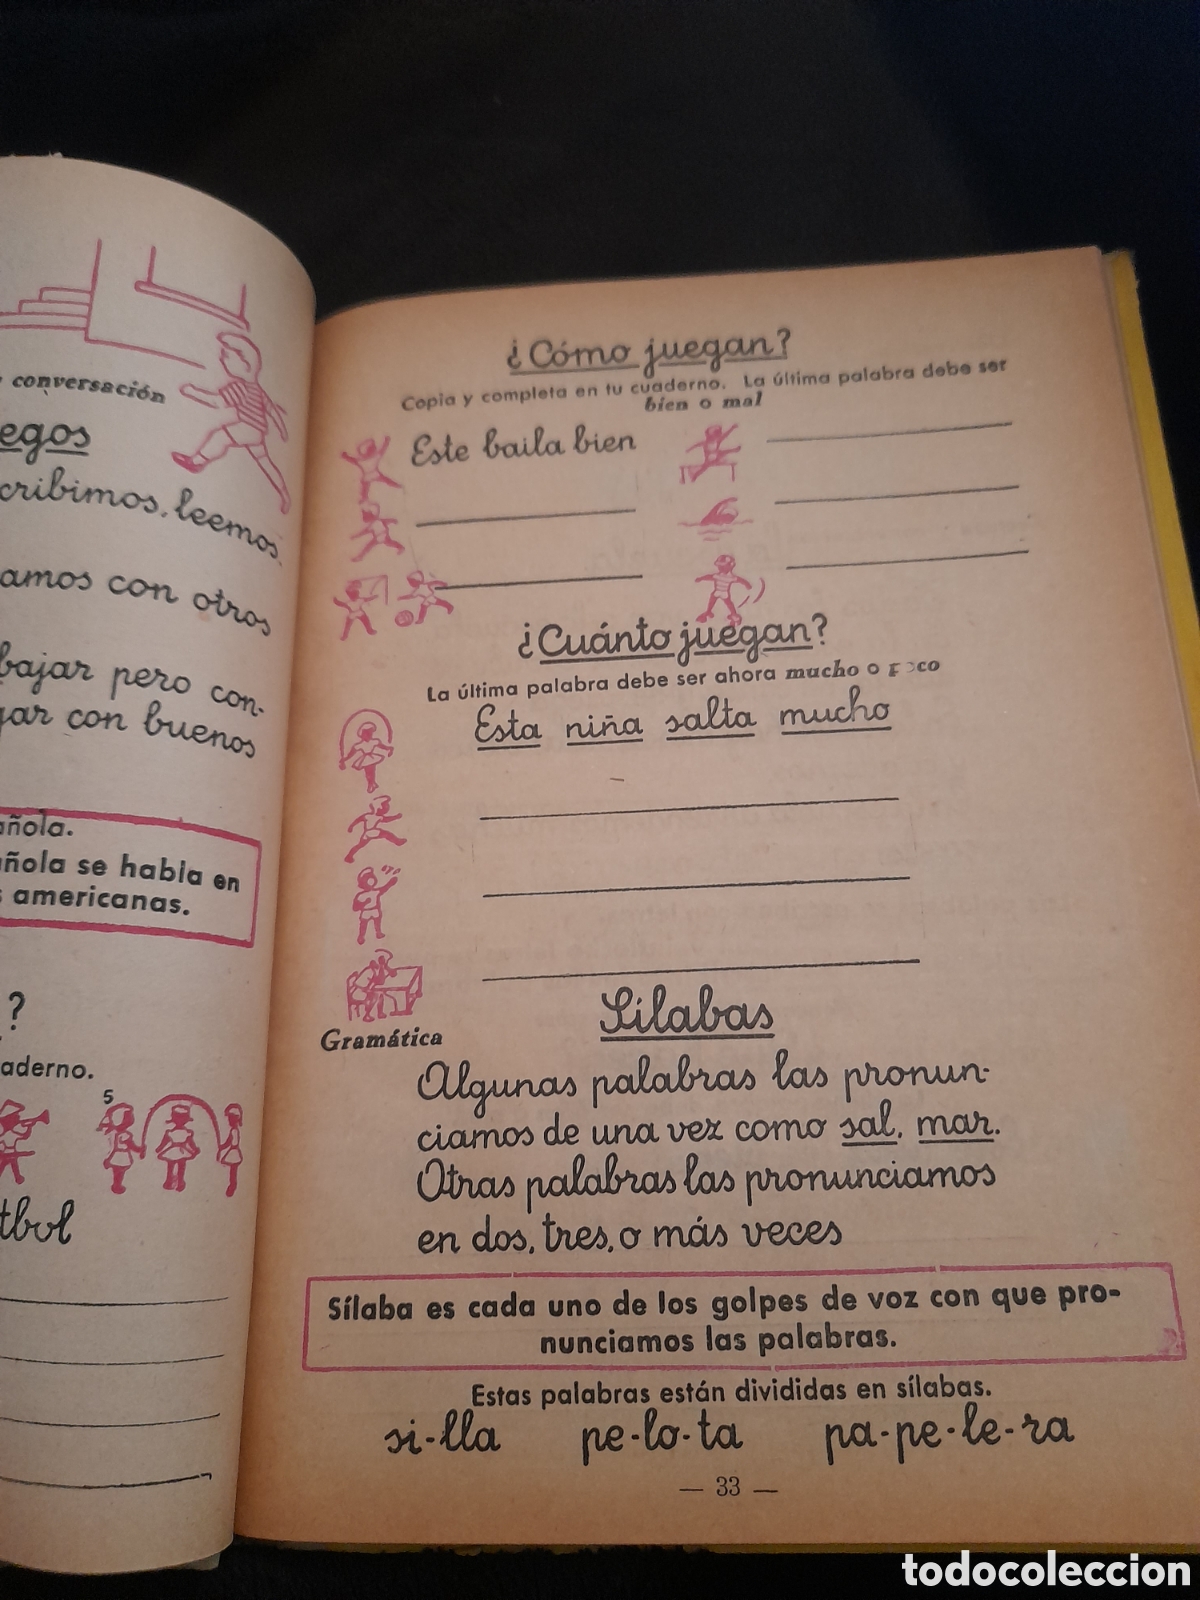 conversación
egos
cribimos, leemos,
amos con otros
bajar pero con-
gar con buenos
ñola.
añola se habla en
s americanas.
?
aderno.
5
tbol
¿Cómo juegan?
Copia y completa en tu cuaderno. La última palabra debe ser
bien o mal
Este baila bien
¿Cuánto juegan?
La última palabra debe ser ahora mucho o poco
Esta niña salta mucho
Gramática
Sílabas
Algunas palabras las pronun-
ciamos de una vez como sal, mar.
Otras palabras las pronunciamos
en dos, tres, o más veces
Sílaba es cada uno de los golpes de voz con que pro-
nunciamos las palabras.
Estas palabras están divididas en sílabas.
si-lla pe-lo-ta pa-pe-le-ra
— 33 —
todocoleccion